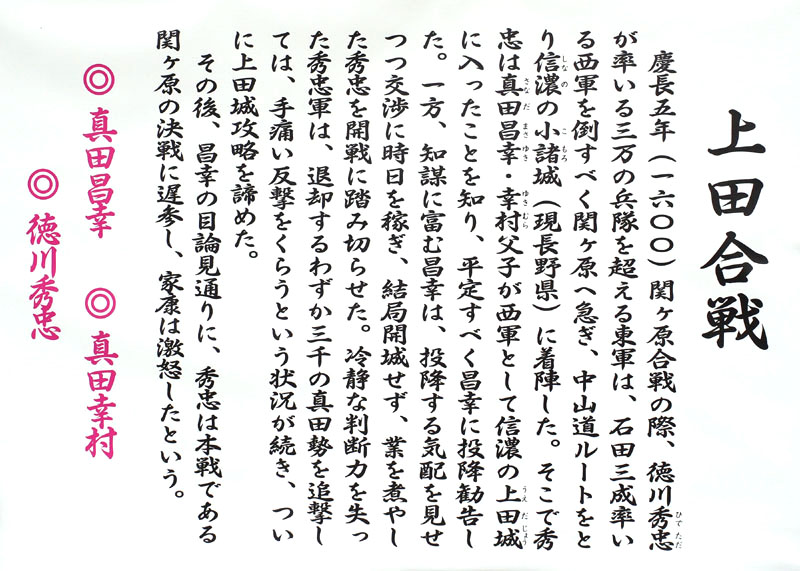 上田合戦
慶長五年（一六〇〇）関ヶ原合戦の際、徳川秀忠
が率いる三万の兵隊を超える東軍は、石田三成率い
る西軍を倒すべく関ヶ原へ急ぎ、中山道ルートをと
り信濃の小諸城（現長野県）に着陣した。そこで秀
忠は真田昌幸・幸村父子が西軍として信濃の上田城
に入ったことを知り、平定すべく昌幸に投降勧告し
た。一方、知謀に富む昌幸は、投降する気配を見せ
つつ交渉に時日を稼ぎ、結局開城せず、業を煮やし
た秀忠を開戦に踏み切らせた。冷静な判断力を失っ
た秀忠軍は、退却するわずか三千の真田勢を追撃し
ては、手痛い反撃をくらうという状況が続き、つい
に上田城攻略を諦めた。
その後、昌幸の目論見通りに、秀忠は本戦である
関ヶ原の決戦に遅参し、家康は激怒したという。
◎ 真田昌幸　◎ 真田幸村
◎ 徳川秀忠